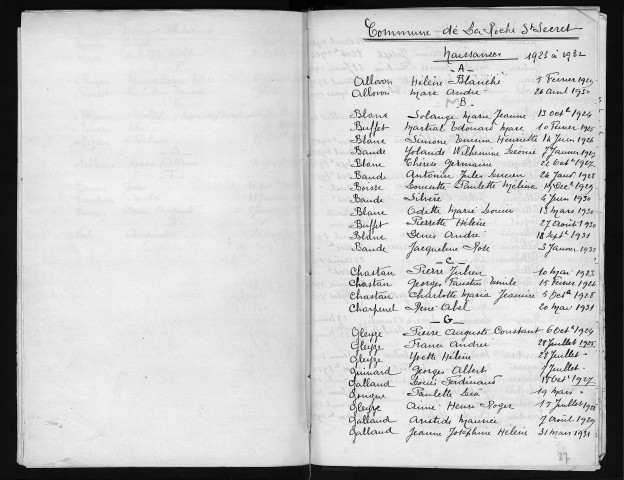 Commune de La Roche St Secret
Naissances 1923 à 1932
- A -
Allovon Hélène Blanche 5 Février 1929
Allovon Marc André 26 Avril 1930
B
Blanc Solange Marie Jeanne 13 Octe 1924
Buffet Martial Edouard Marc 10 Février 1925
Blanc Simone Emma Henriette 14 Juin 1926
Baude Yolande Wilhemine Léonie 7 Janvier 1927
Blanc Thérèse Germaine 22 Octe 1927
Baude Antonin Jules Lucien 24 Janv 1928
Boisse Loucette Paulette Melina 19 Dece 1929
Baude Silvère 4 Juin 1930
Blanc Odette Marie Louise 13 Mars 1930
Buffet Pierrette Hélène 27 Août 1930
Blanc Denis André 18 Septe 1931
Baude Jacqueline Rose 3 Janvier 193
- C -
Chastan Pierre Julien 10 Mai 1923
Chastan Georges Faustin Emile 15 Février 1926
Chastan Charlotte Maria Jeannine 5 Octe 1928
Charpenel René Abel 20 Mai 1931
- G -
Gleyze Pierre Auguste Constant 6 Octe 1924
Gleyze Francis André 28 Juillet 1925
Gleyze Yvette Hélène 28 Juillet -
Guinard Georges Albert Juillet -
Galland Louis Ferdinand 18 Octe 1927
Paulette Léa 19 Mars -
Gleyze Anne Henri Roger 15 Juillet 1928
Galland Aristide Maurice 7 Août 1929
Galland Jeanne Joséphine Hélène 31 Mars 1931
37